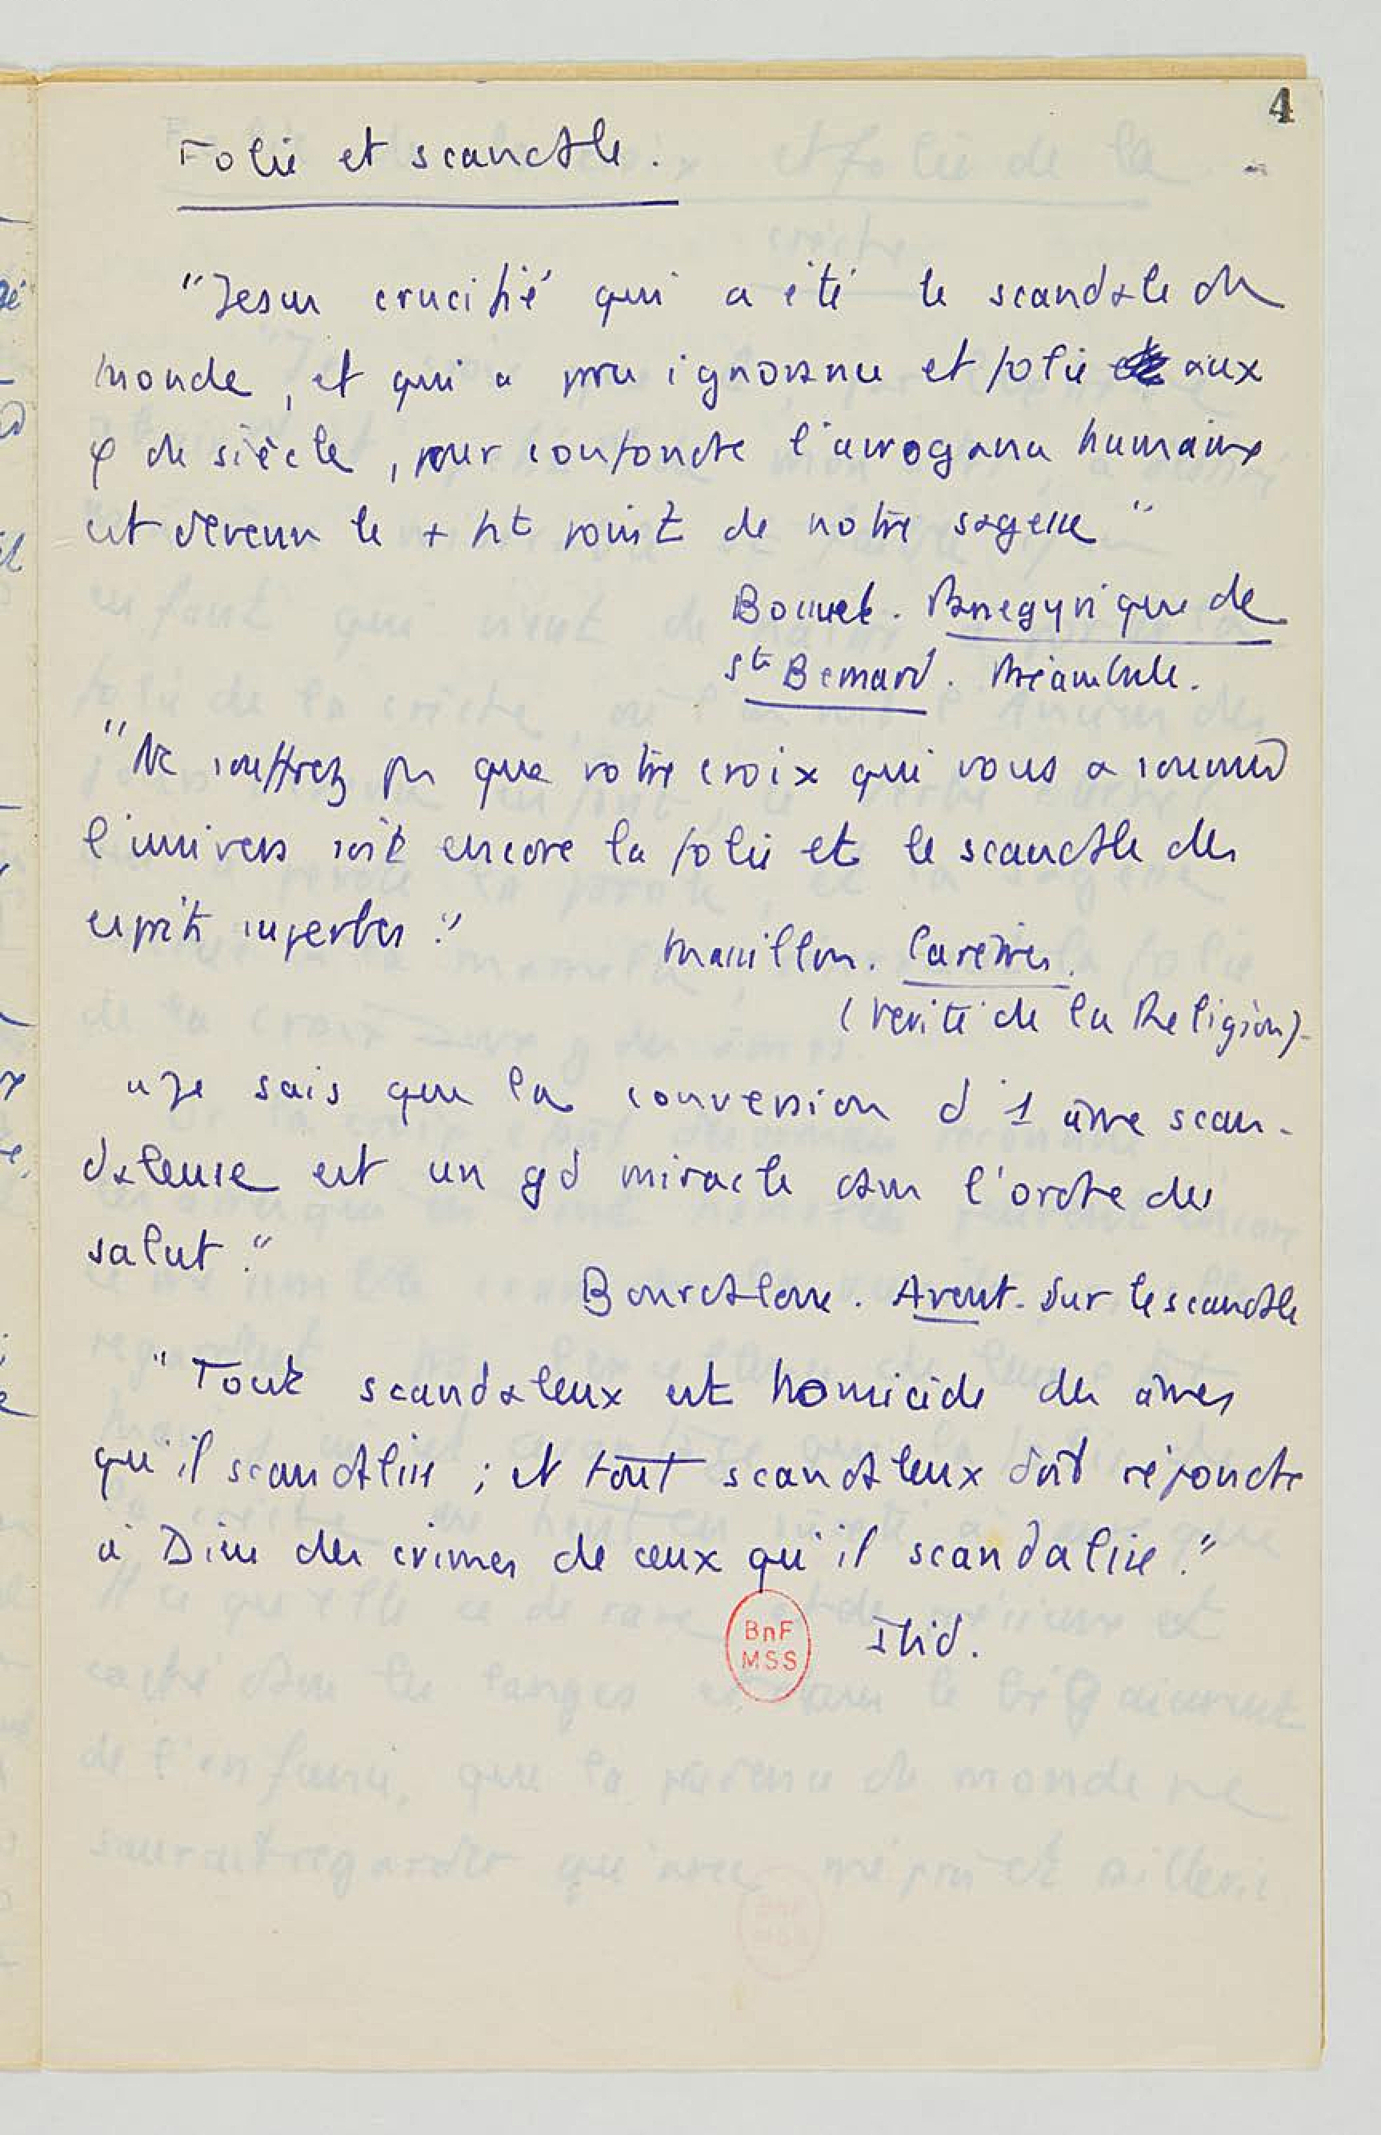 4
Folie et scandale.
"Jesus crucifié qui a été le scandale du
monde, et qui a paru ignorance et folie aux
φ du siècle, pour confondre l'arrogance humaine
est devenu le + ht point de notre sagesse"
Bossuet. Panegyrique de
St Bernard. Préambule.
"Ne souffrez pas que votre croix qui vous a soumis
l'univers soit encore la folie et le scandale des
esprits superbes."
Massillon. Carêmes.
(verité de la Religion).
"Je sais que la conversion d'1 âme scan-
daleuse est un gd miracle dans l'ordre du
salut."
Bourdaloue. Avent. Sur le scandale
"Tout scandaleux est homicide des âmes
qu'il scandalise ; et tout scandaleux doit répondre
à Dieu des crimes de ceux qu'il scandalise."
BnF
MSS
Ibid.